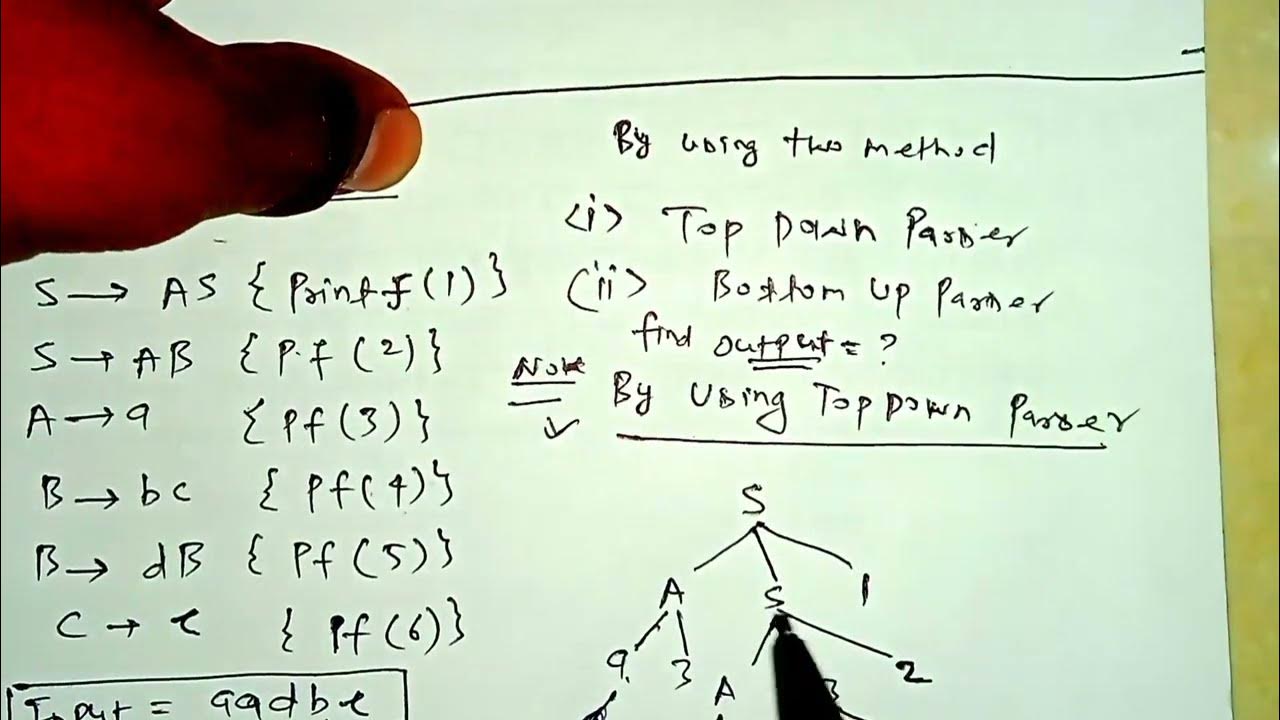 By using two method
<i> Top Down Parser
(ii> Bottom Up Parser
find output = ?
Note
By Using TopDown Parser
S → AS { Printf(1) }
S → AB { P.f (2) }
A → a { Pf(3) }
B → bc { Pf(4) }
B → dB { Pf(5) }
C → e { Pf(6) }
Input = aadbe
S
A S 1
a 3 A B 2